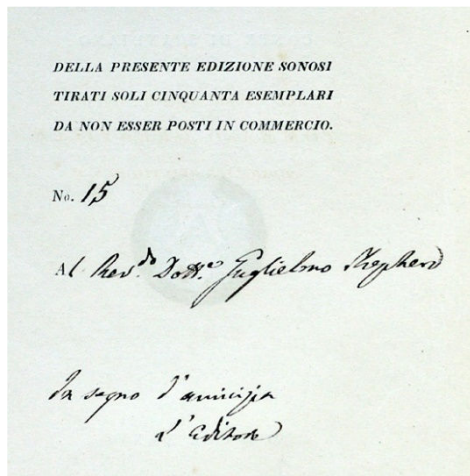 DELLA PRESENTE EDIZIONE SONOSI
TIRATI SOLI CINQUANTA ESEMPLARI
DA NON ESSER POSTI IN COMMERCIO.
No. 15
Al Rev.do Dott.e Guglielmo Shepherd
In segno d'amicizia
L'Editore